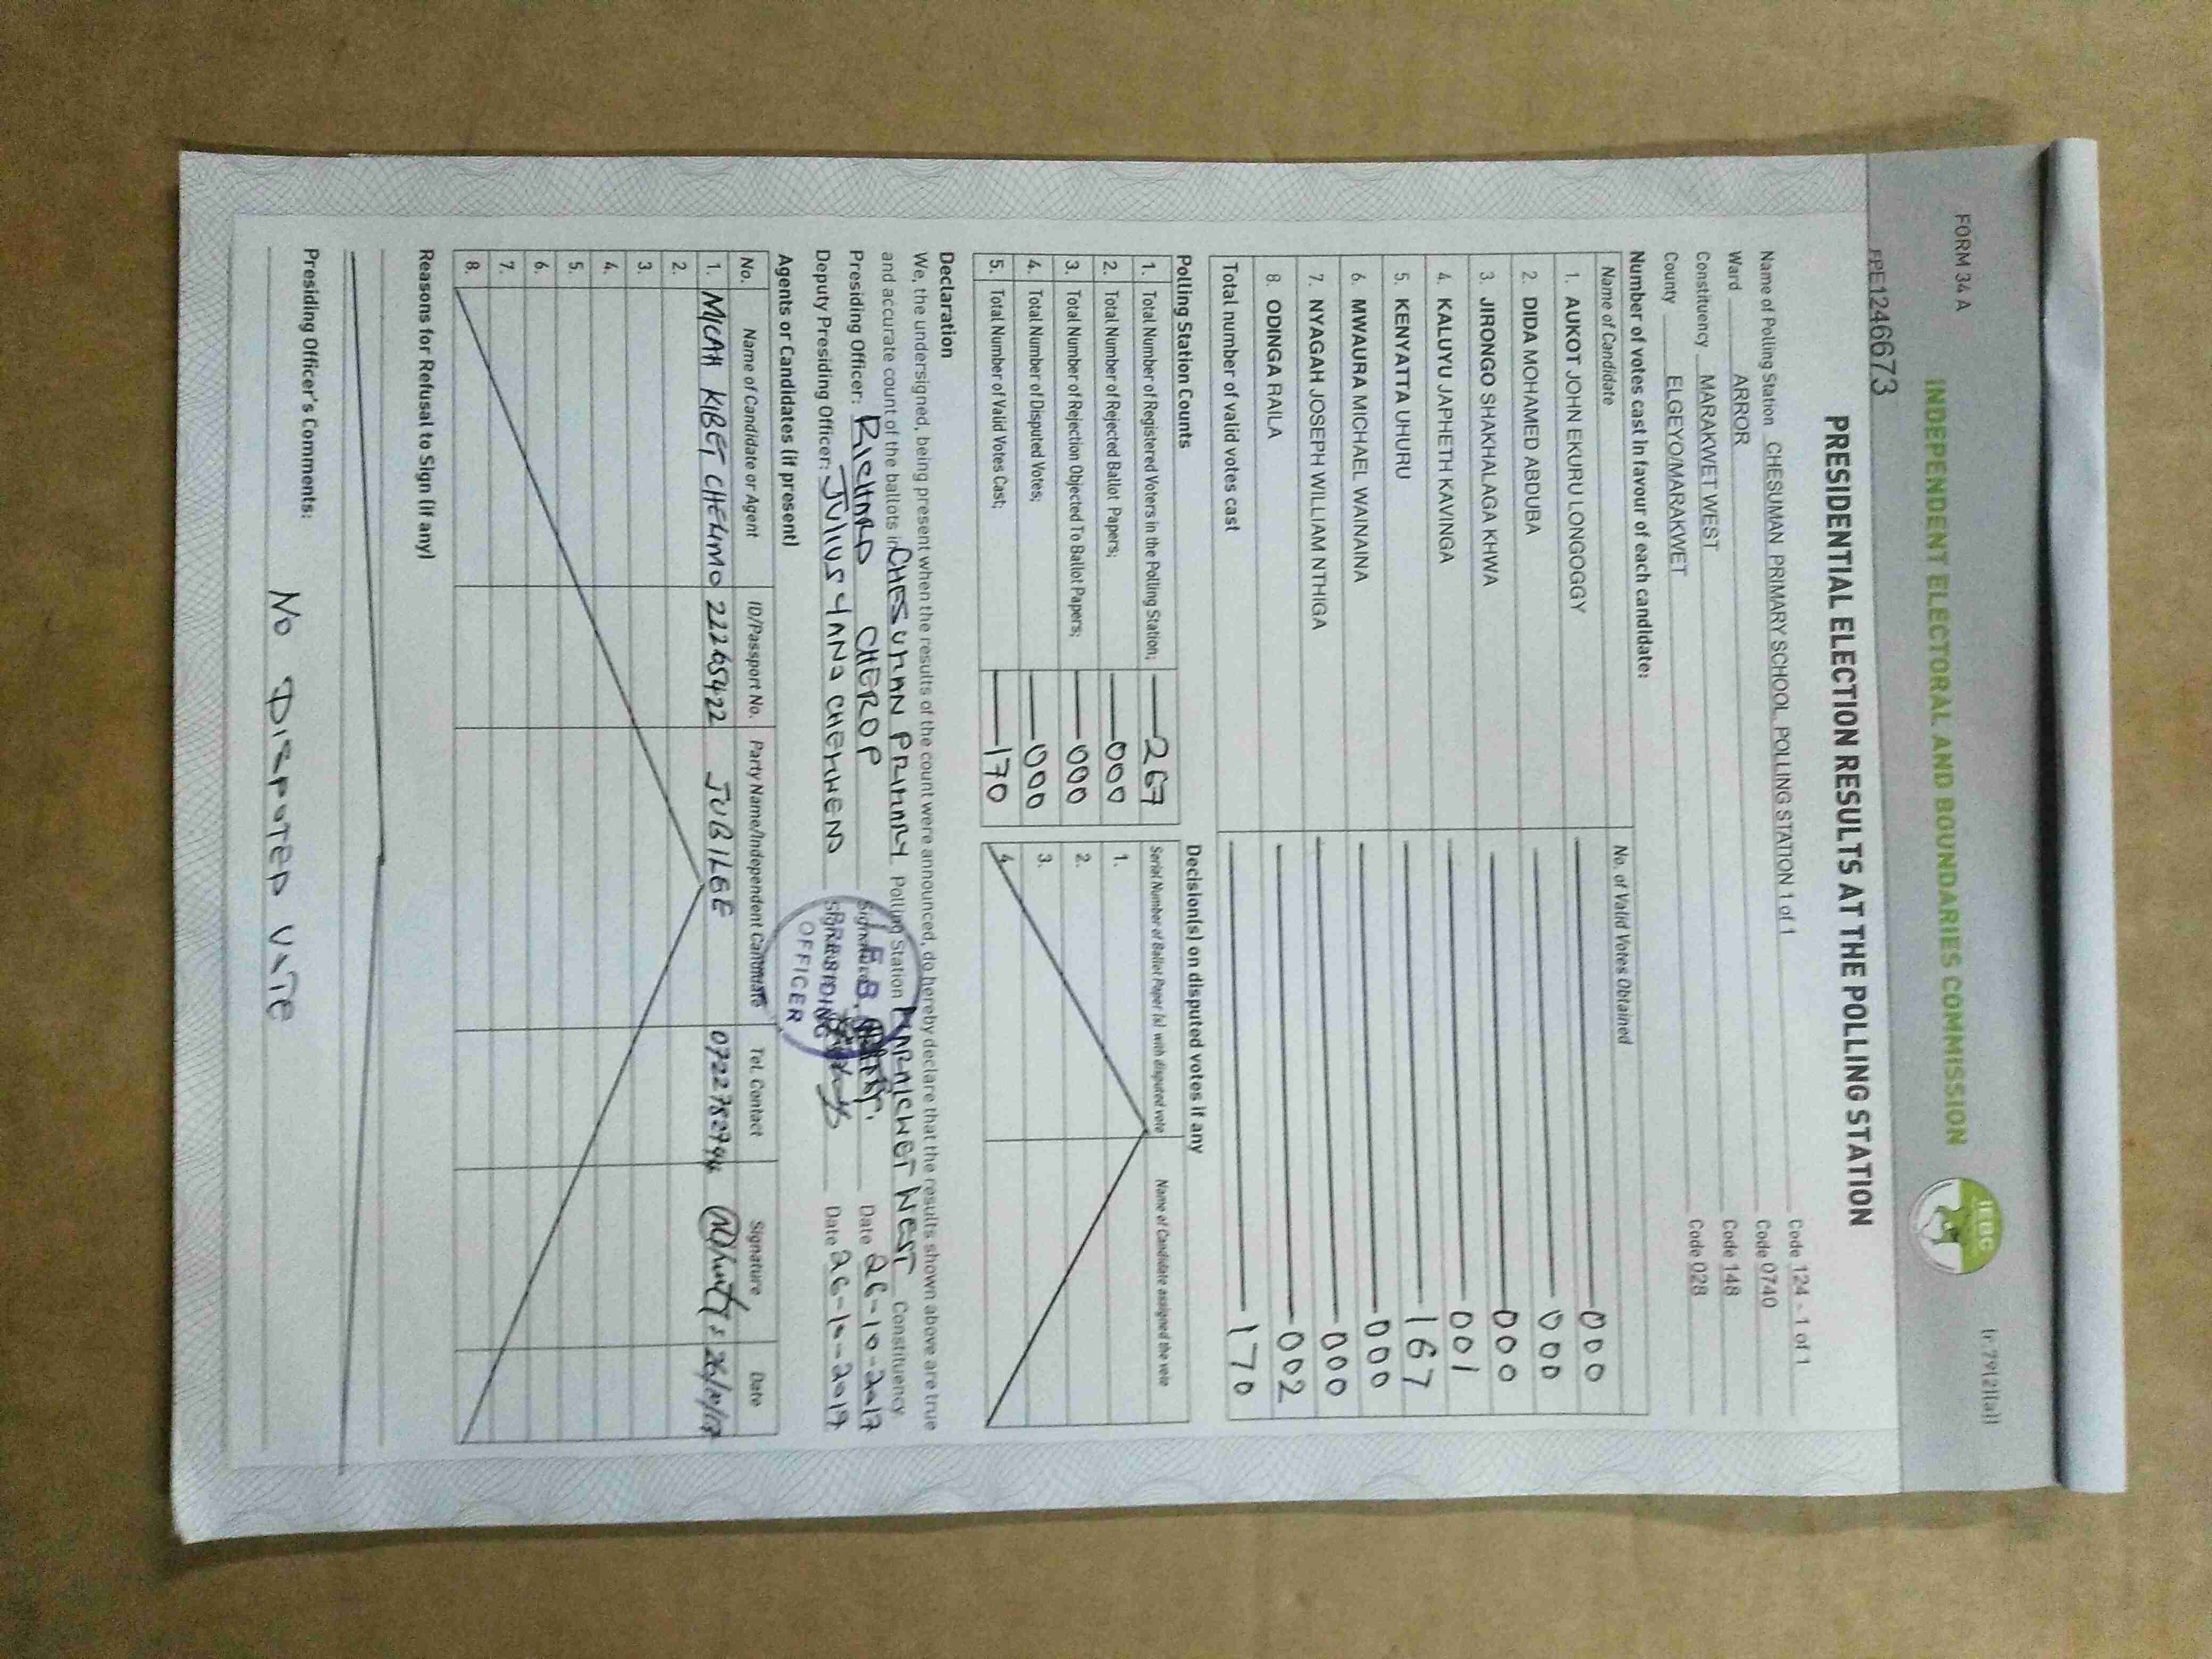 FORM 34 A
[r.79(2)(a)]
INDEPENDENT ELECTORAL AND BOUNDARIES COMMISSION
IEBC
FPE1246673
PRESIDENTIAL ELECTION RESULTS AT THE POLLING STATION
Name of Polling Station CHESUMAN PRIMARY SCHOOL POLLING STATION 1 of 1 Code 124 - 1 of 1
Ward ARROR Code 0740
Constituency MARAKWET WEST Code 148
County ELGEYO/MARAKWET Code 028
Number of votes cast in favour of each candidate:
Name of Candidate No. of Valid Votes Obtained
1. AUKOT JOHN EKURU LONGOGGY 000
2. DIDA MOHAMED ABDUBA 000
3. JIRONGO SHAKHALAGA KHWA 000
4. KALUYU JAPHETH KAVINGA 001
5. KENYATTA UHURU 167
6. MWAURA MICHAEL WAINAINA 000
7. NYAGAH JOSEPH WILLIAM NTHIGA 000
8. ODINGA RAILA 002
Total number of valid votes cast 170
Polling Station Counts
1. Total Number of Registered Voters in the Polling Station; 267
2. Total Number of Rejected Ballot Papers; 000
3. Total Number of Rejection Objected To Ballot Papers; 000
4. Total Number of Disputed Votes; 000
5. Total Number of Valid Votes Cast; 170
Decision(s) on disputed votes if any
Serial Number of Ballot Paper (s) with disputed vote Name of Candidate assigned the vote
1.
2.
3.
4.
Declaration
We, the undersigned, being present when the results of the count were announced, do hereby declare that the results shown above are true
and accurate count of the ballots in CHESUMAN PRIMARY Polling Station MARAKWET WEST Constituency
Presiding Officer: RICHARD CHEROP Signature Date 26-10-2017
Deputy Presiding Officer: JULIUS YANO Signature Date 26-10-2017
PRESIDING
OFFICER
Agents or Candidates (if present)
No. Name of Candidate or Agent ID/Passport No. Party Name/Independent Candidate Tel. Contact Signature Date
1. MICAH KIBET CHELIMO 22265422 JUBILEE 26/10/17
2.
3.
4.
5.
6.
7.
8.
Reasons for Refusal to Sign (if any)
Presiding Officer's Comments:
NO DISPUTED VOTE